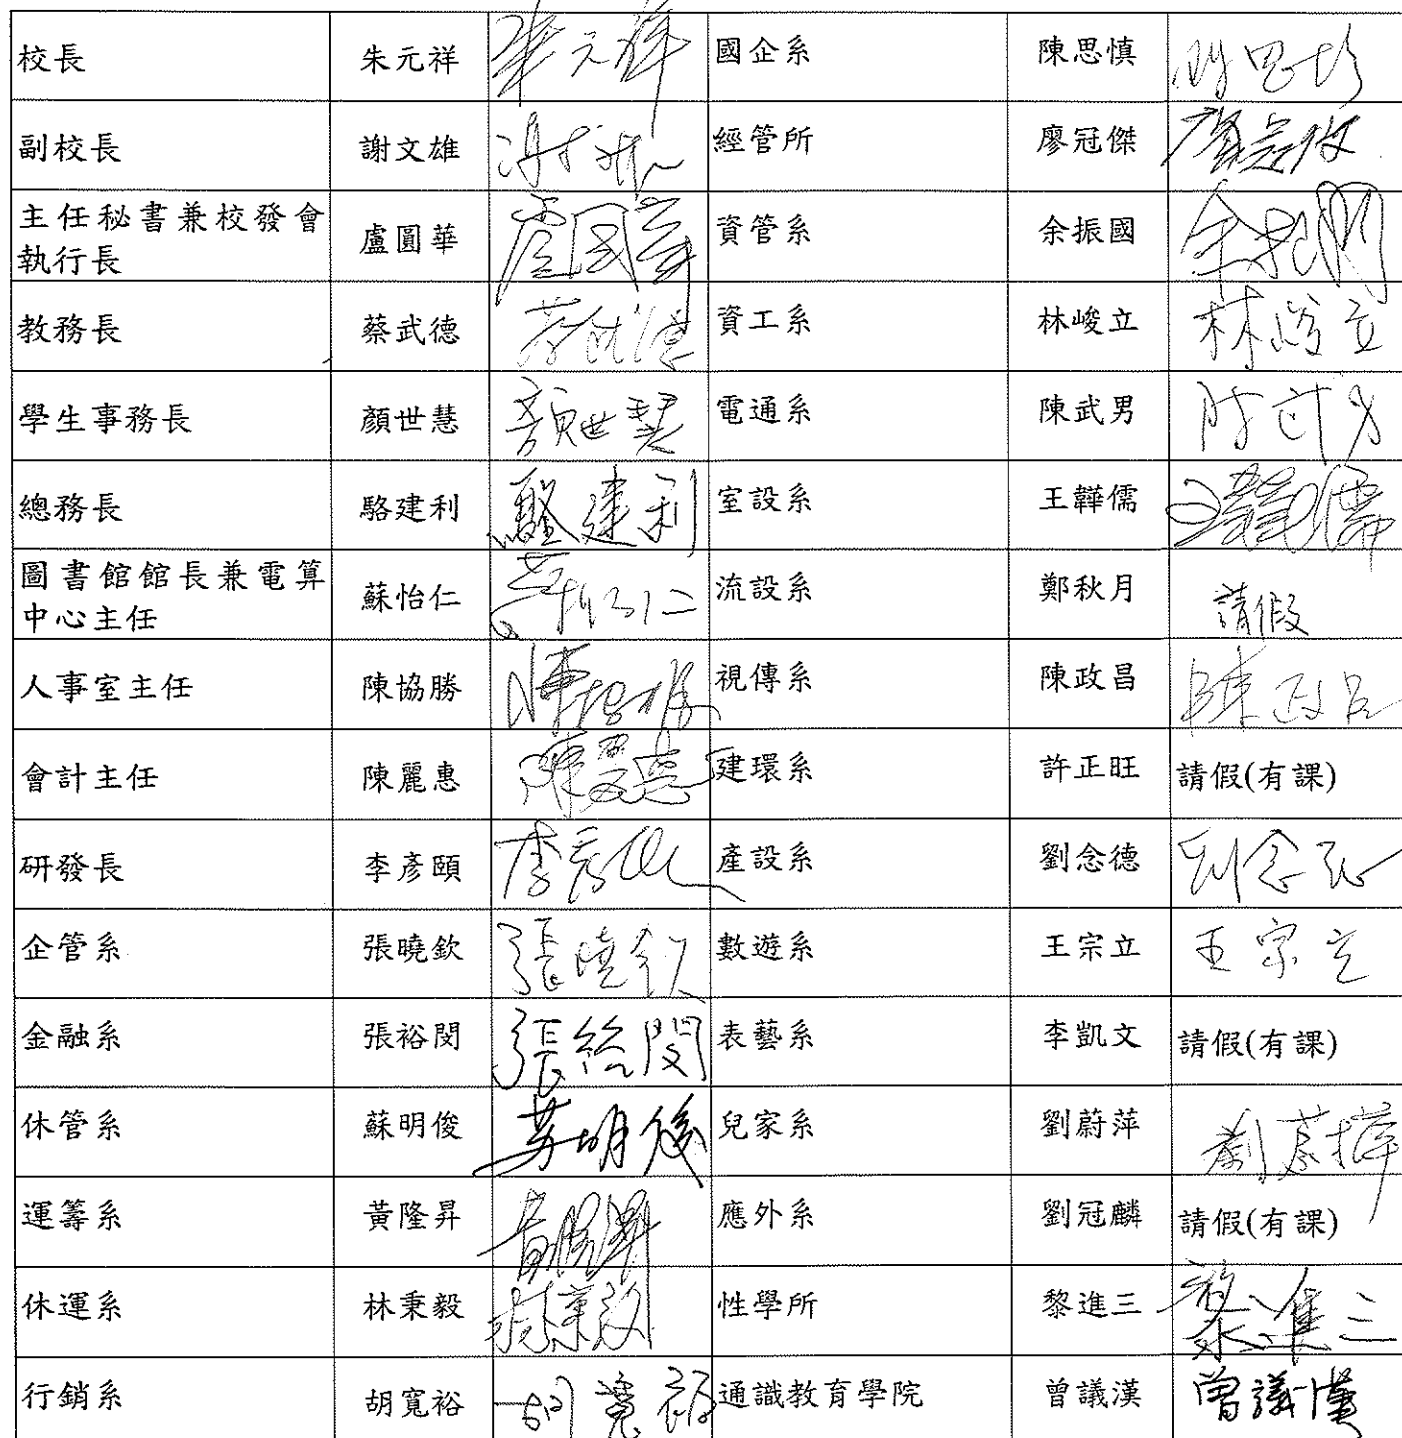 校長 朱元祥 朱元祥 國企系 陳思慎 陳思慎
副校長 謝文雄 謝文雄 經管所 廖冠傑 廖冠傑
主任秘書兼校發會 盧圓華 盧圓華 資管系 余振國 余振國
執行長
教務長 蔡武德 蔡武德 資工系 林峻立 林峻立
學生事務長 顏世慧 顏世慧 電通系 陳武男 陳武男
總務長 駱建利 駱建利 室設系 王韡儒 王韡儒
圖書館館長兼電算 蘇怡仁 蘇怡仁 流設系 鄭秋月 請假
中心主任
人事室主任 陳協勝 陳協勝 視傳系 陳政昌 陳政昌
會計主任 陳麗惠 陳麗惠 建環系 許正旺 請假(有課)
研發長 李彥頤 李彥頤 產設系 劉念德 劉念德
企管系 張曉欽 張曉欽 數遊系 王宗立 王宗立
金融系 張裕閔 張裕閔 表藝系 李凱文 請假(有課)
休管系 蘇明俊 蘇明俊 兒家系 劉蔚萍 劉蔚萍
運籌系 黃隆昇 黃隆昇 應外系 劉冠麟 請假(有課)
休運系 林秉毅 林秉毅 性學所 黎進三 黎進三
行銷系 胡寬裕 胡寬裕 通識教育學院 曾議漢 曾議漢